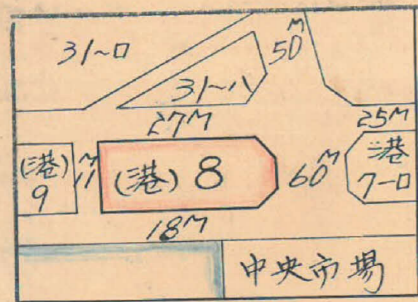 31~ロ
50M
31~ハ
27M
25M
(港)
9
11M
(港) 8
60M
港
7-ロ
18M
中央市場